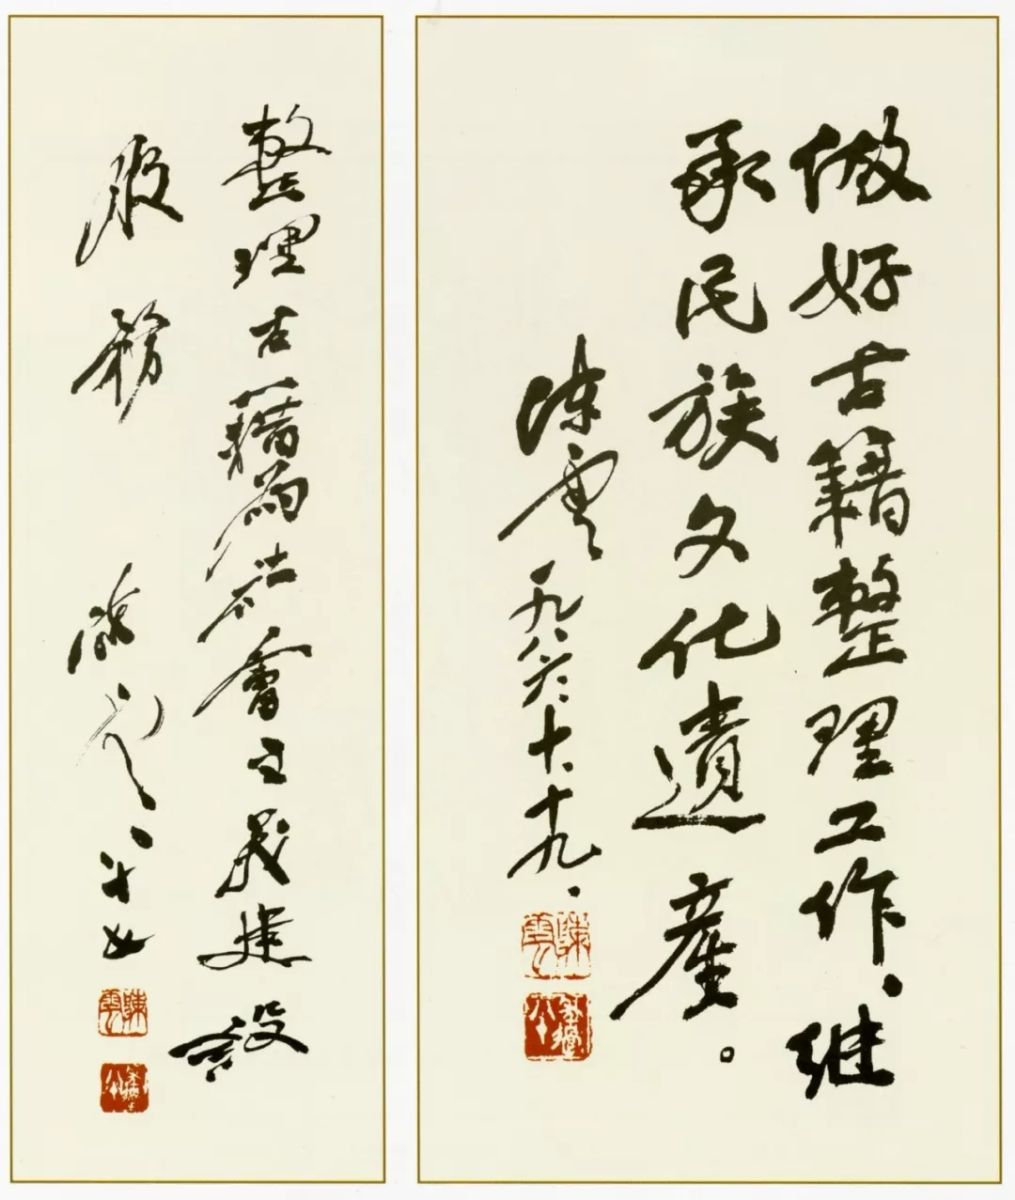 做好古籍整理工作、继
承民族文化遺產。
陳雲 一九八六.十.十九.
陳雲
整理古籍為社會主義建設
服務
陳雲
陳雲